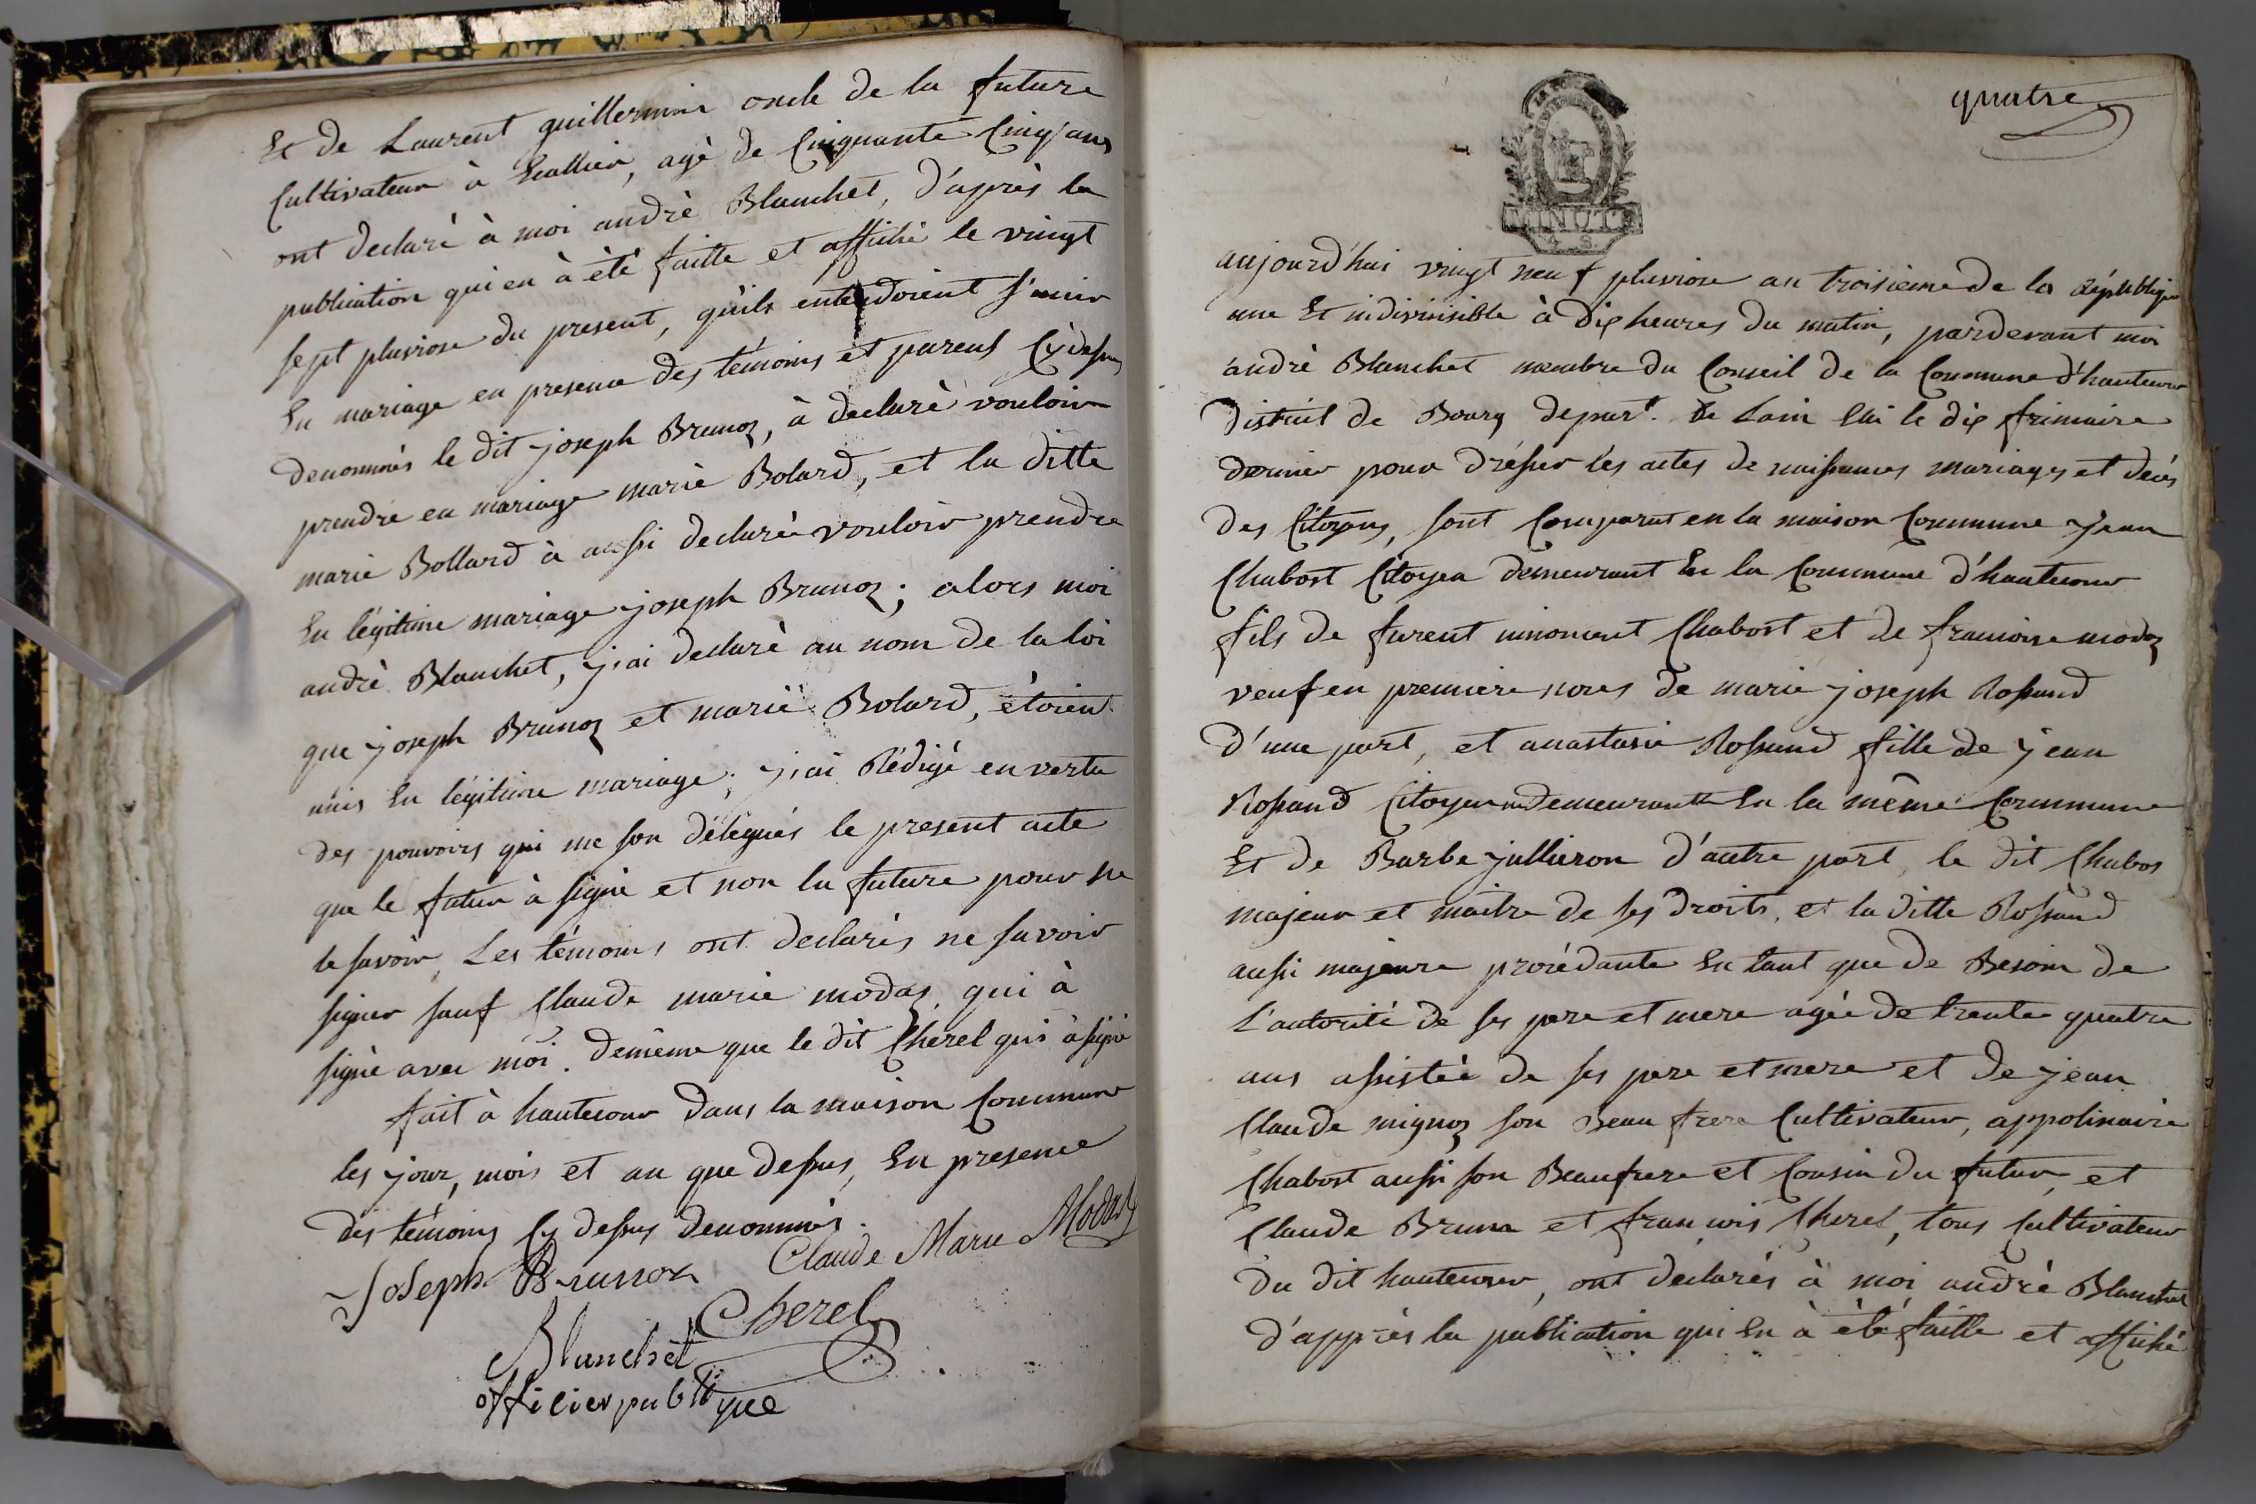 Et de Laurent guillermin oncle de la future
Cultivateur à , agé de Cinquante Cinq ans
ont declaré à moi andrè Blanchet, d'après la
publication qui en à èté faitte et affiché le vingt
sept pluviose du present, qu'ils entendoient s'unir
En mariage en presence des témoins et parens Cydessus
denommés le dit joseph Brunoz, à declarè vouloir
prendre en mariage marie Bolard, et la ditte
marie Bollard à aussi declarée vouloir prendre
En légitime mariage joseph Brunoz; alors moi
andrè Blanchet, j'ai declarè au nom de la loi
que joseph Brunoz et marie Bolard, étoient
unis En légitime mariage; j'ai Rédigé en vertu
des pouvoirs qui me son délégués le present acte
que le futur à signé et non la future pour ne
le savoir, Les témoins ont declarés ne savoir
signer sauf Claude marie modas, qui à
signè avec moi. demême que le dit Cherel qui à signé
fait à hautecour dans la maison Commune
les jour, mois et an que dessus, En presence
des témoins Cy dessus denommés.
Joseph Brunoz Claude Marie Modas
Cherel
Blanchet
officier publique
quatre
MINUTE
aujourd'hui vingt neuf pluviose an troisieme de la république
une Et indivisible à dix heures du matin, pardevant moi
andrè Blanchet membre du Conseil de la Commune d'hautecour
district de Bourg depart. de Lain Elu le dix frimaire
dernier pour drésser lés actes de naissances mariages et decés
des Citoyens, sont Comparut en la maison Commune jean
Chabost Citoyen demeurant En la Commune d'hautecour
fils de furent Chabost et de francoise modaz
veuf en premiere noces de marie joseph Rossand
d'une part, et anastasie Rossand fille de jean
Rossand Citoyen demeurant En la même Commune
Et de Barbe jullieron d'autre part, le dit Chabos
majeur et maitre de ses droits, et la ditte Rossand
aussi majeure procédante En tant que de Besoin de
L'autorité de ses pere et mere agée de trente quatre
ans assistée de ses pere et mere et de jean
Claude mignoz son Beau frere Cultivateur, appolinaire
Chabost aussi son Beaufrere et Cousin du futur, et
Claude Brun et francois Cherel, tous Cultivateur
du dit hautecour, ont declarés à moi andrè Blanchet
d'apprès la publication qui En à èté faitte et affiché